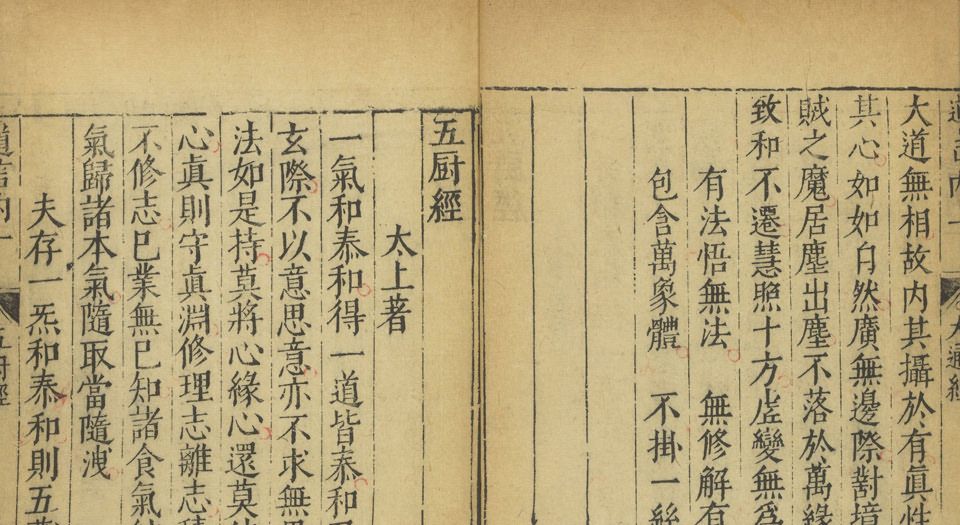 大道無相故内其攝於有眞性
其心如如自然廣無邊際對境
賊之魔居塵出塵不落於萬緣
致和不遷慧照十方虛變無爲
有法悟無法 無修解有
包含萬象體 不掛一絲
大通經
五厨經
太上著
一氣和泰和得一道皆泰和
玄際不以意思意亦不求無
法如是持莫將心緣心還莫
心眞則守眞淵修理志離志
不修志已業無已知諸食氣
氣歸諸本氣隨取當隨洩
夫存一炁和泰和則五
道言内一
五厨經